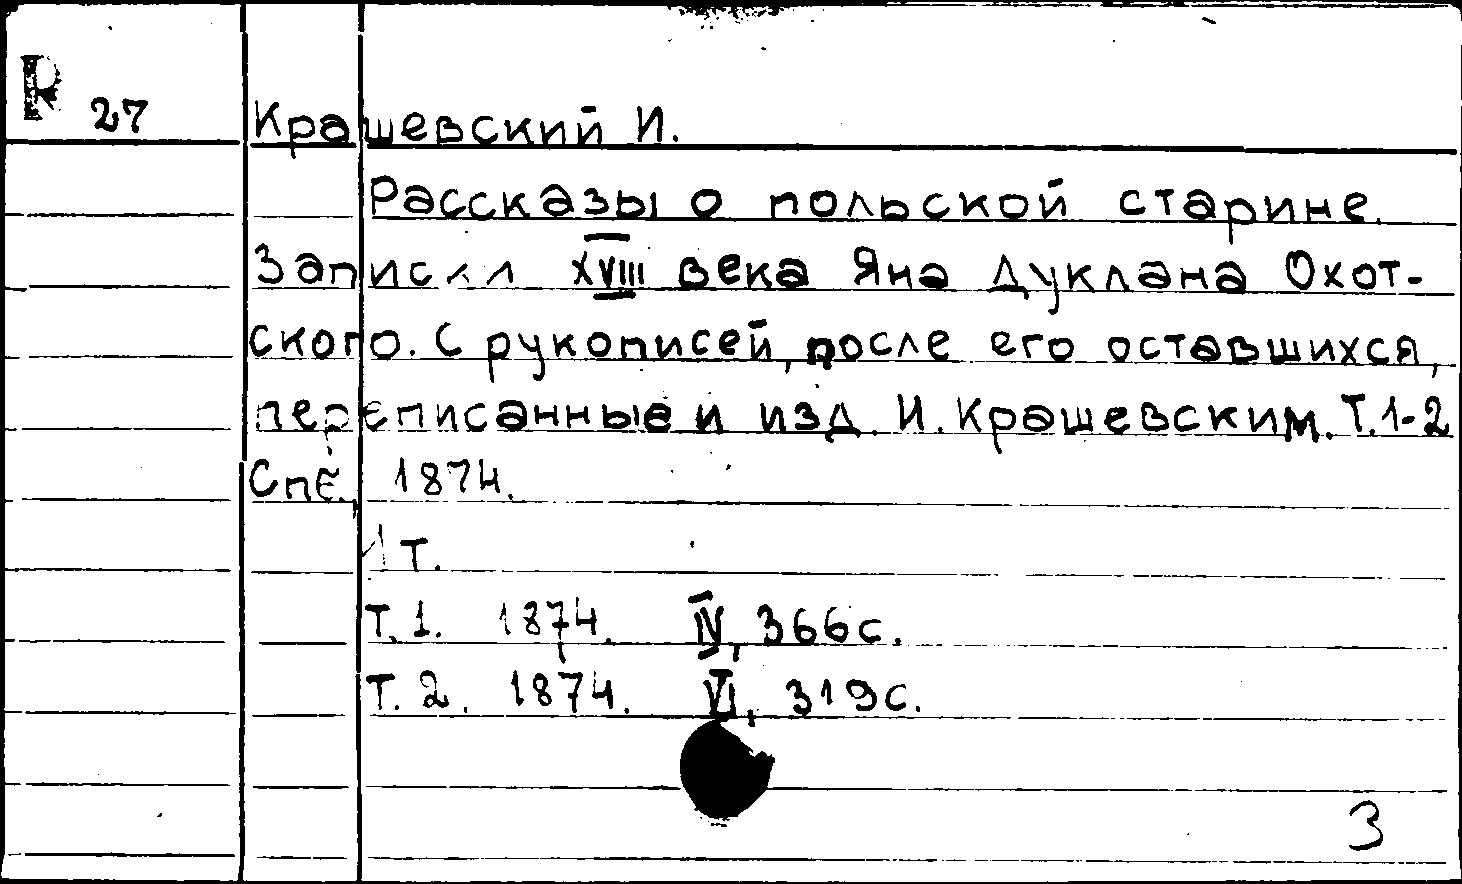 R 27
Крашевский И.
Рассказы о польской старине.
Записки XVIII века Яна Дуклана Охот-
ского. С рукописей, после его оставшихся,
переписанные и изд. И. Крашевским. Т.1-2
Спб., 1874.
1 т.
Т. 1. 1874. IV, 366с.
Т. 2. 1874. VI, 319с.
3